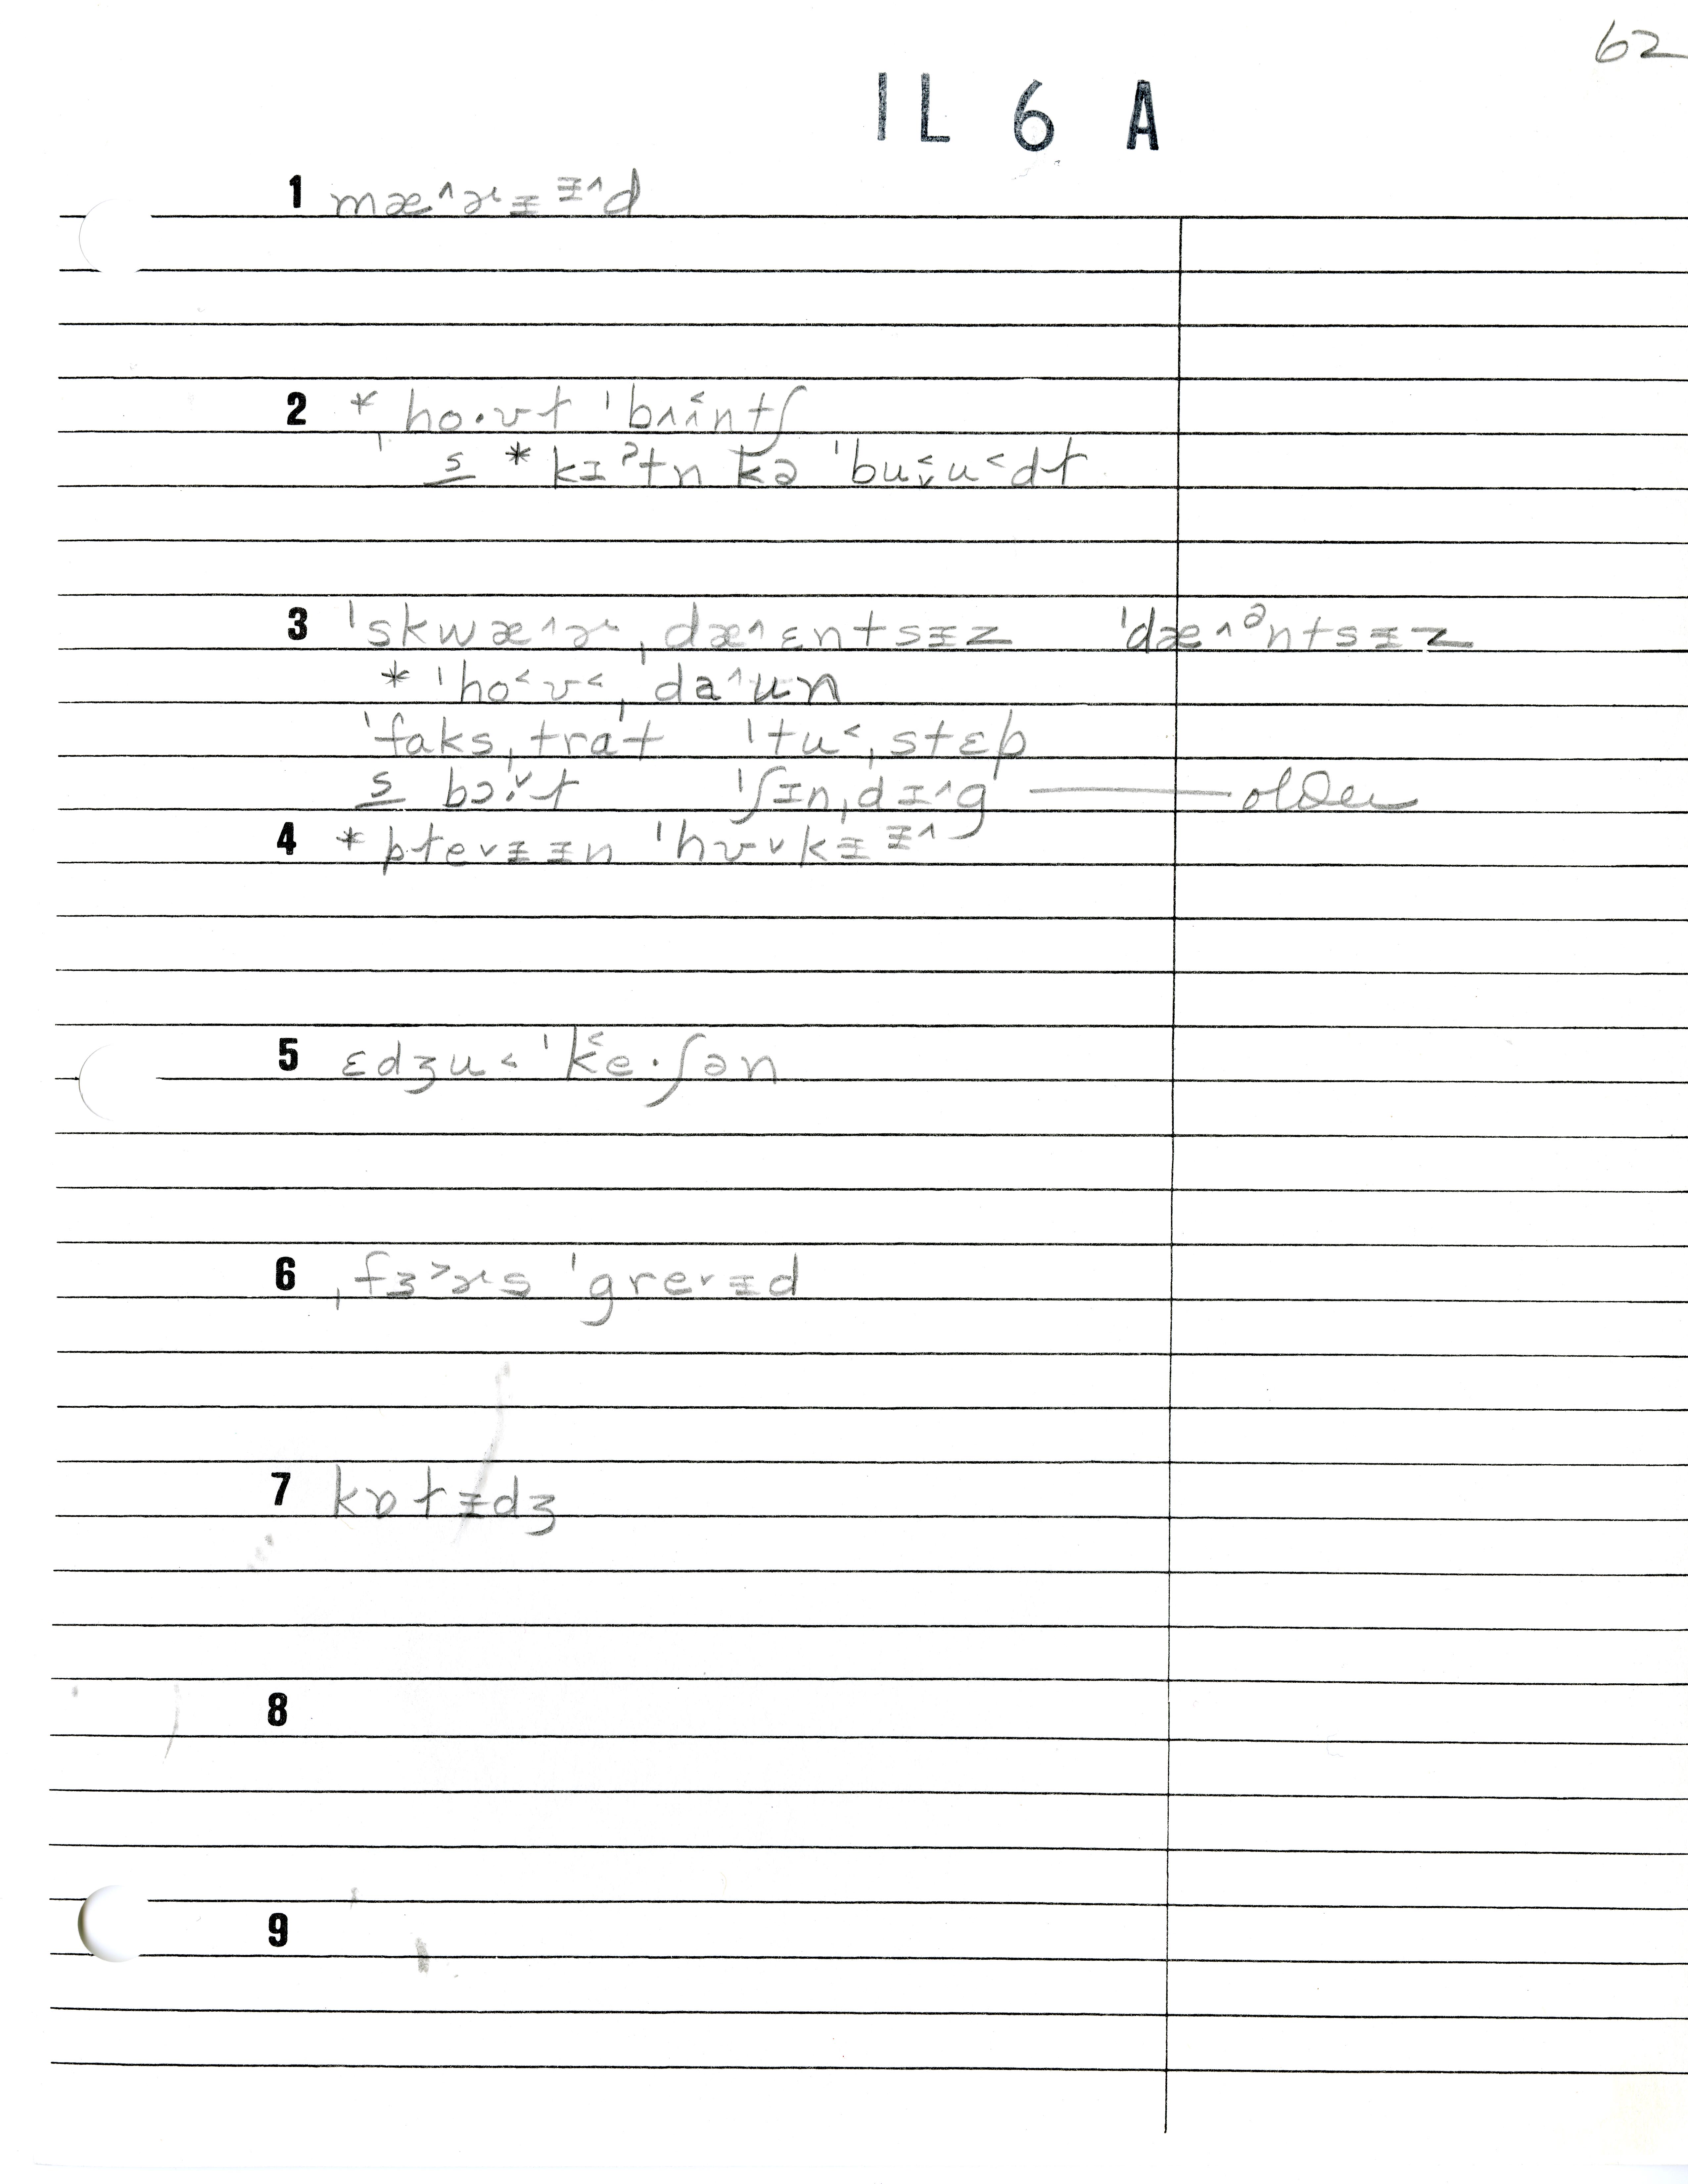 62
IL 6 A
1 mæ^ɚɨ ɨ^d
2 * ho·ʊt ˈbʌɪ˂ntʃ
s * kɪʔtn kə ˈbu˂ᵥu˂dt
3 ˈskwæ^ɚˌdæ^ɛntsɨz ˈdæ^ᵊntsɨz
* ˈho˂ʊ˂ˌda^ʊn
ˈfaksˌtrat ˈtu˂ˌstɛp
s bɔ:ˇt ˈʃɪnˌdɪ^g — older
4 * pteᵥɨ ɪn ˈhʊᵥkɨ ɨ^
5 ɛdʒu˂ ˈk˂e·ʃən
6 ˌfɜ˃ɚs ˈgreᵥɨd
7 kɒtɨdʒ
8
9